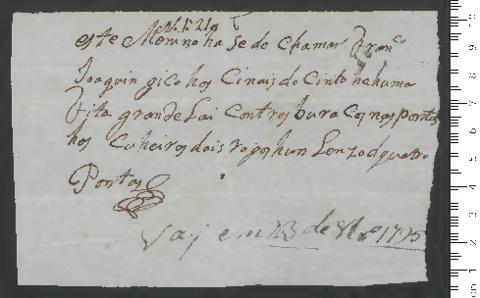 este Menino ha se de chamar Franco
Joaquin gico hos Cinais do Cinto he huma
Fita grande Lai Con tres buracos nas pontas
hos Coheiros dois rojos hun Lenzo d quatro
Pontas
Vaj em 23 de 1795